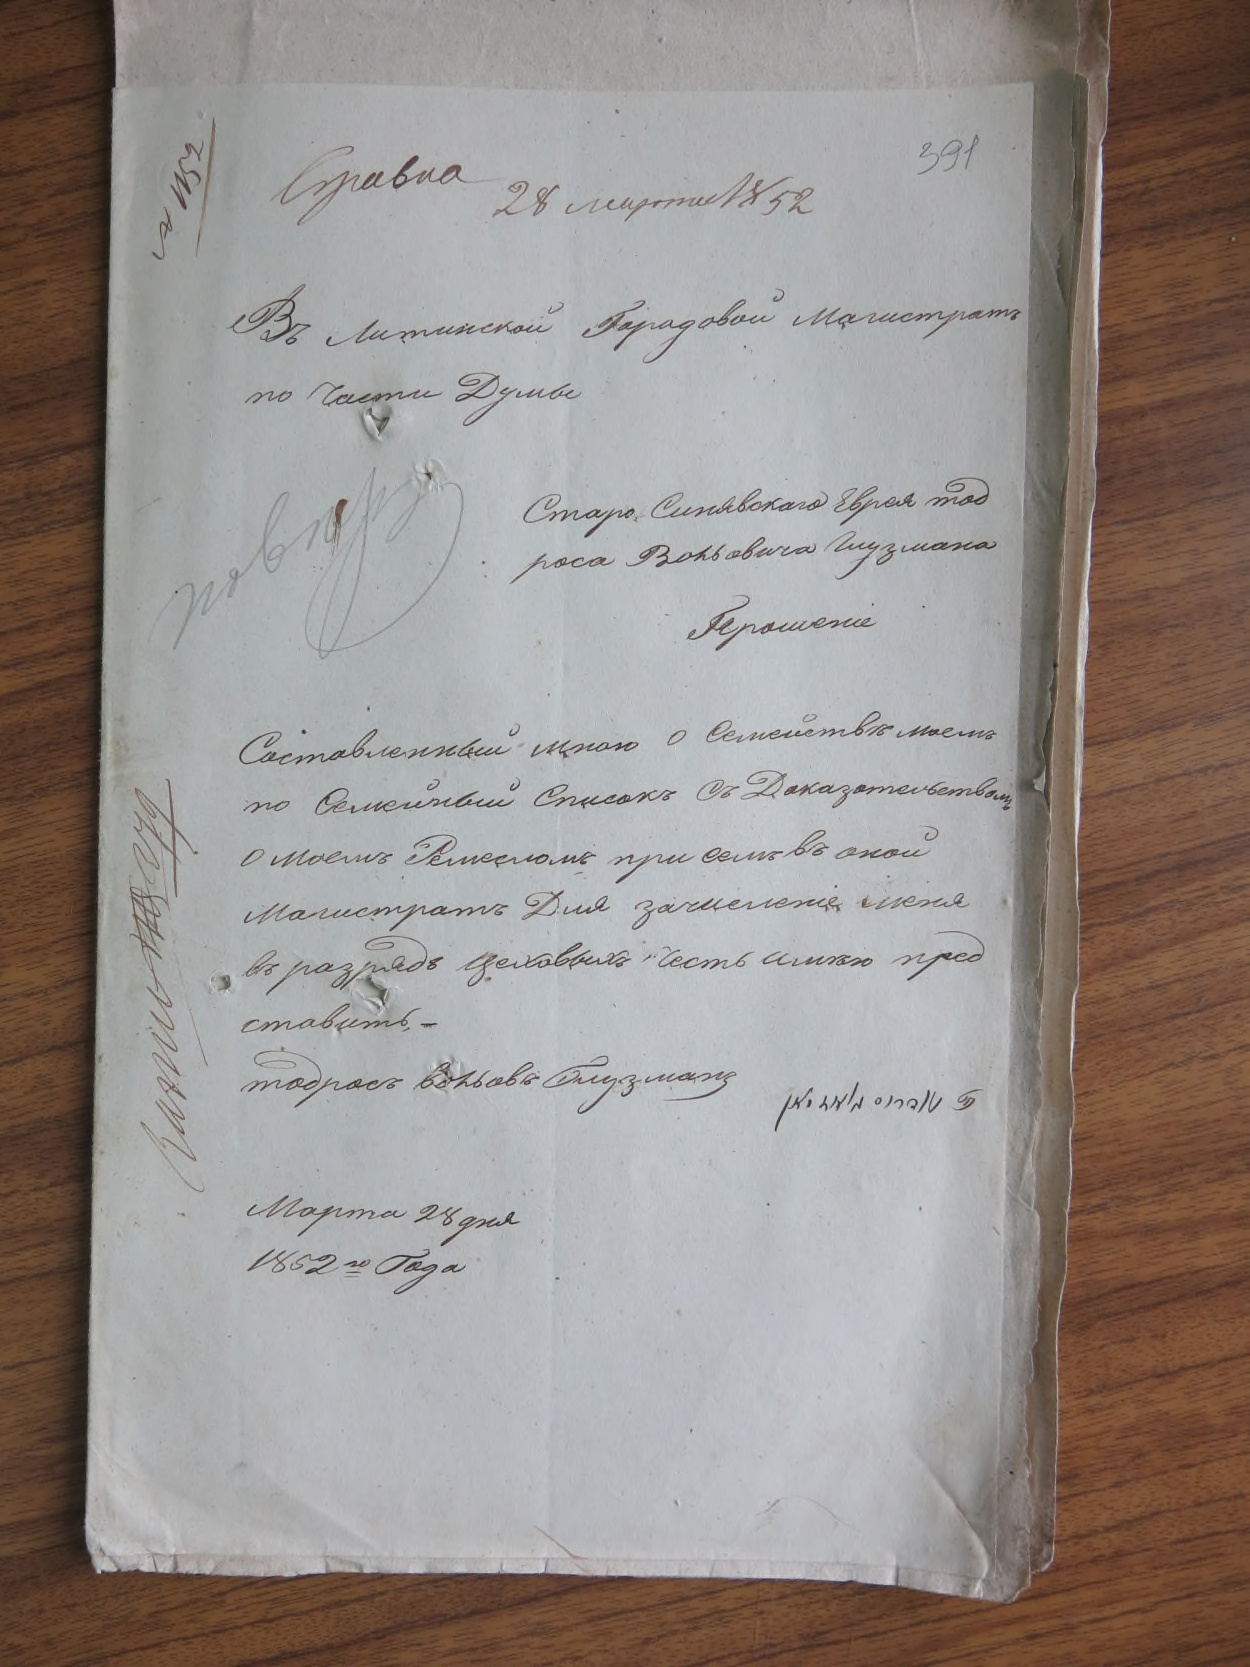 391
№ 1152
Справка
28 марта 1852
Въ Литинской Городовой Магистратъ
по Части Думы
Старо Синявскаго Еврея тод
роса Вольовича Глузмана
Прошеніе
Составленный мною о Семействѣ моемъ
по Семейный Списокъ Съ Доказательствомъ
о моемъ Ремесломъ при семъ въ оной
Магистратъ Для зачисленіе меня
въ разрядъ Цеховыхъ Честь имѣю пред
ставить,-
тодросъ вольовъ Глузманъ
טודרוס גלוזמאן
Марта 28 дня
1852го Года